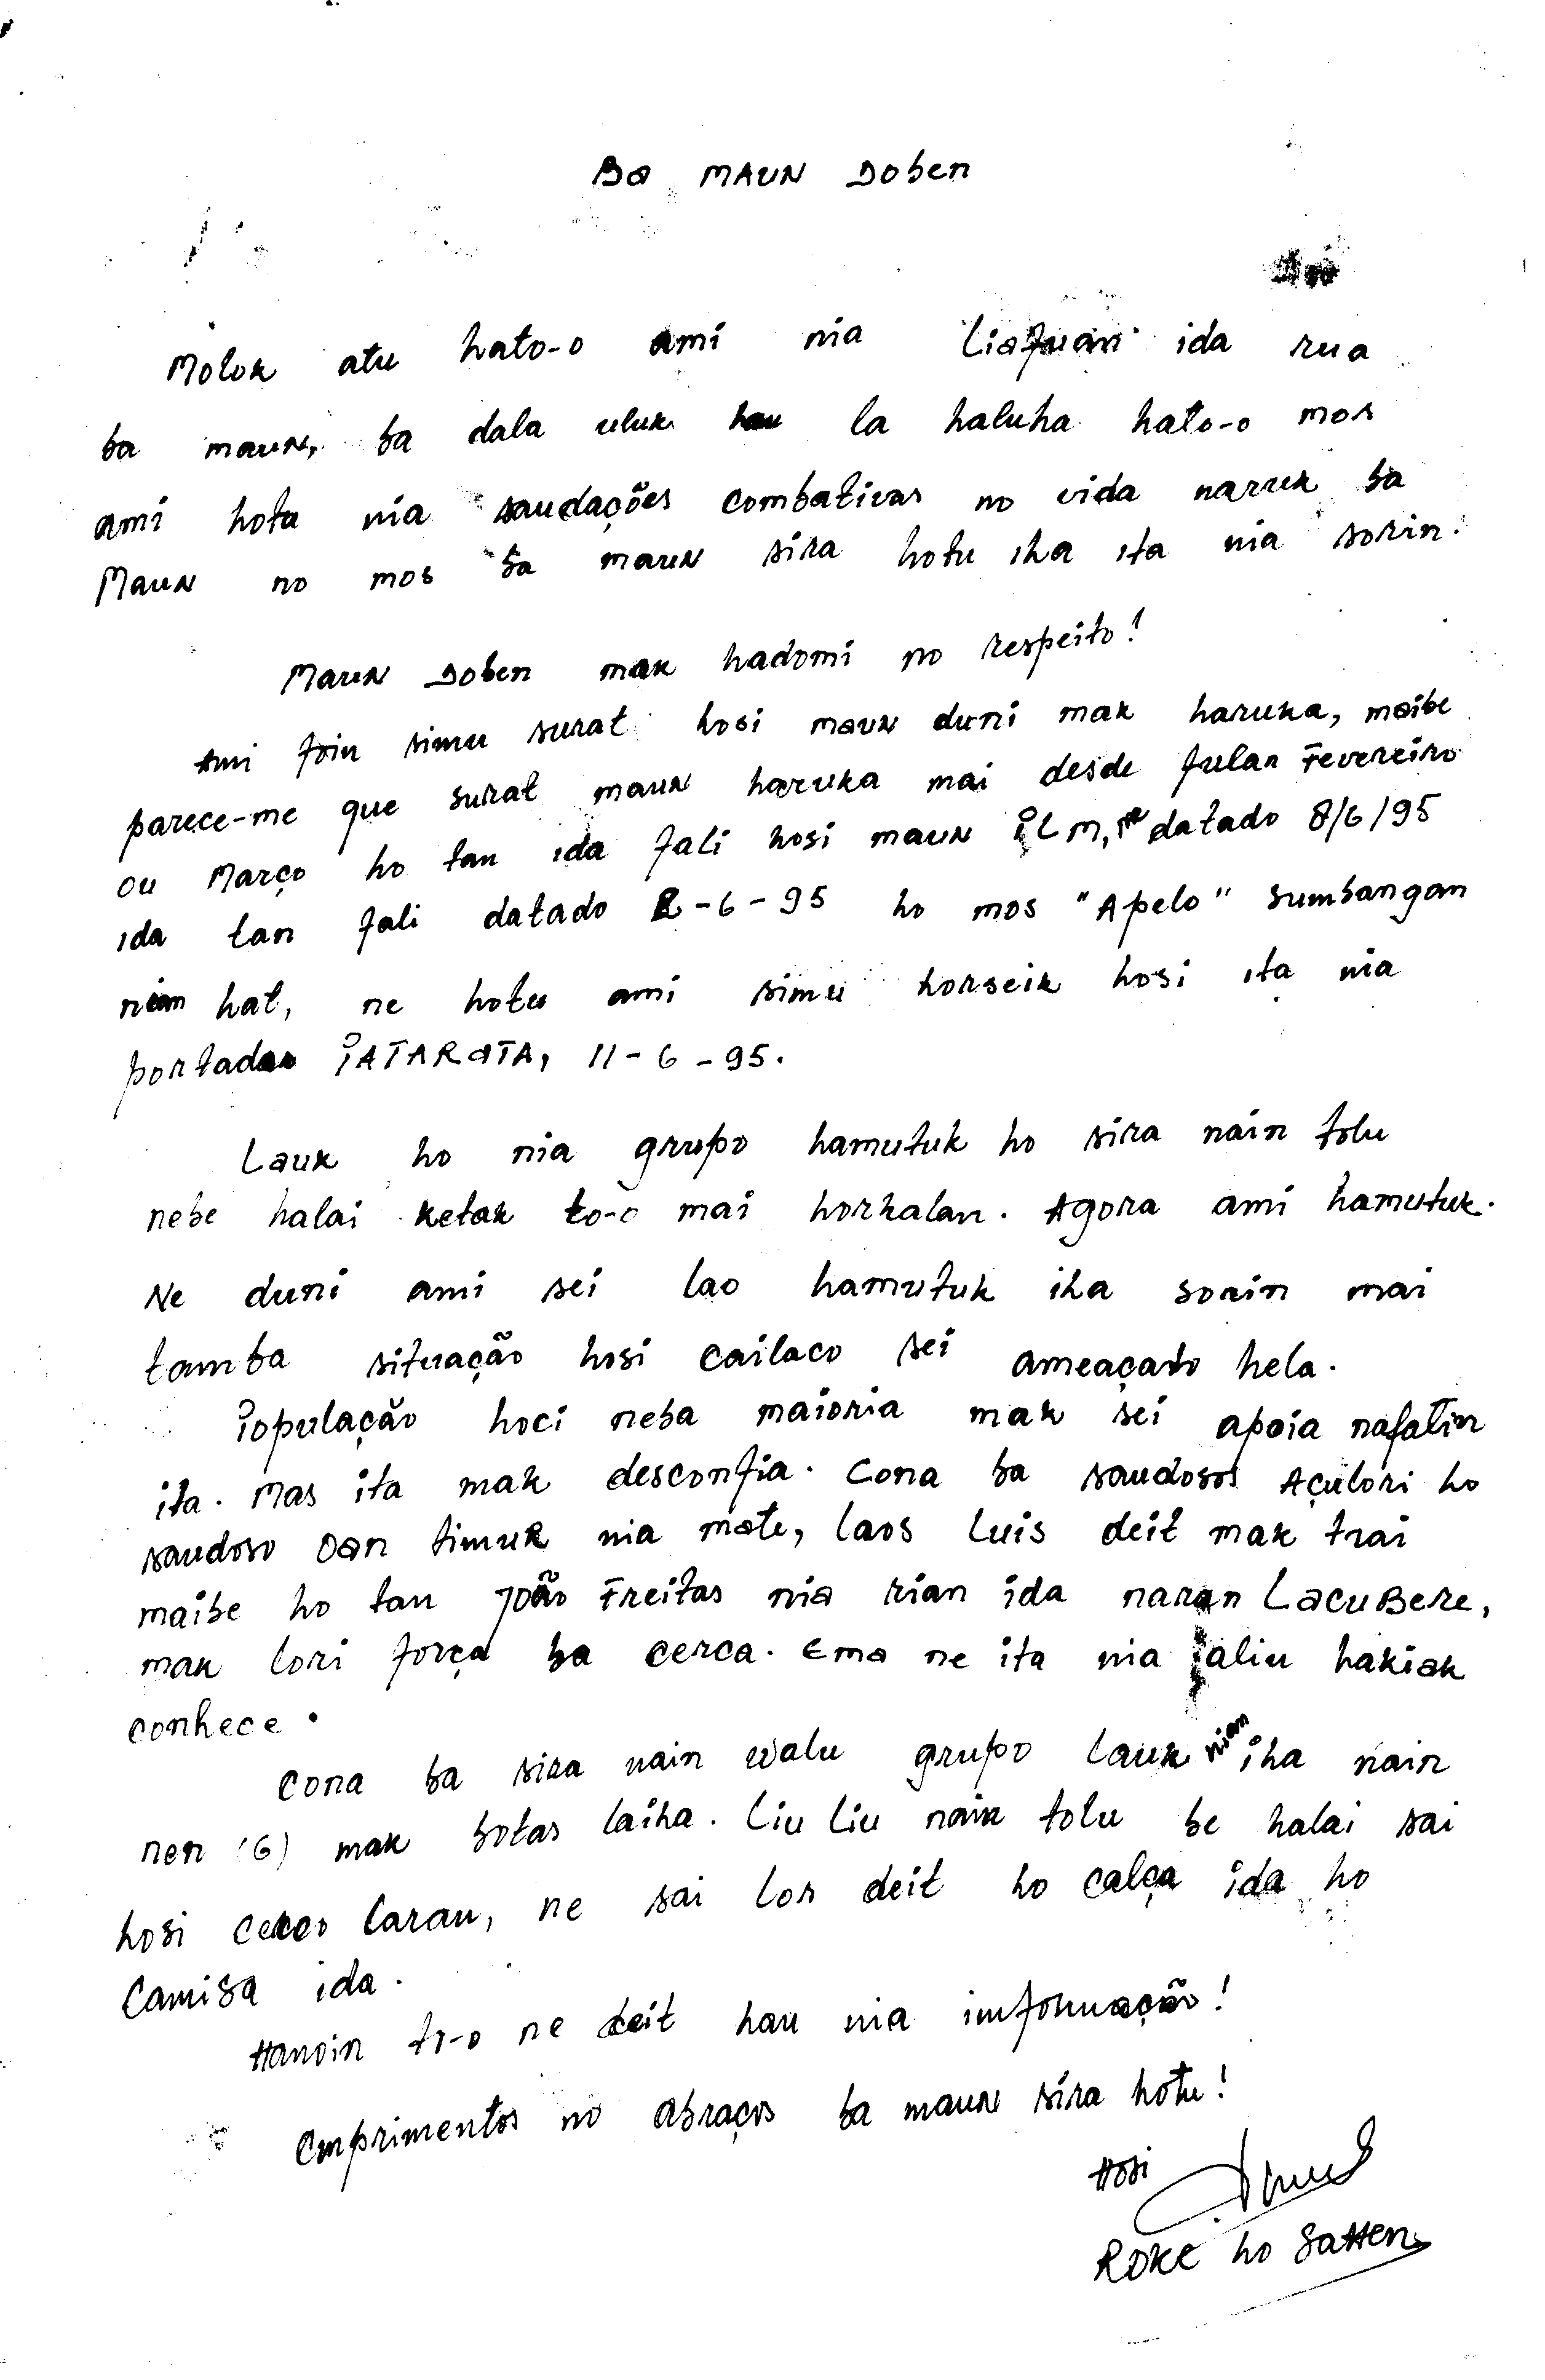 Ba MAUN Doben
Molok atu hato-o ami nia Liafuan ida rua
ba maun, ba dala uluk hau la haluha hato-o mos
ami hotu nia saudações combativas no vida naruk ba
Maun no mos ba maun sira hotu iha ita nia sorin.
Maun Doben mak hadomi no respeito!
Ami foin simu surat hosi maun duni mak haruka, maibe
parece-me que surat maun haruka mai desde fulan Fevereiro
ou Março ho tan ida fali hosi maun PLM, datado 8/6/95
ida tan fali datado 2-6-95 ho mos "Apelo" sumbangan
nian hat, ne hotu ami simu horseik hosi ita nia
portador PATARATA, 11-6-95.
Lauk ho nia grupo hamutuk ho sira nain tolu
nebe halai ketak to-o mai horkalan. Agora ami hamutuk.
Ne duni ami sei lao hamutuk iha sorin mai
tamba situação hosi Cailaco sei ameaçado hela.
População hoci neba maioria mak sei apoia nafatin
ita. Mas ita mak desconfia. Cona ba saudosos Açulori ho
saudoso Oan timur nia mate, laos Luis deit mak trai
maibe ho tan João Freitas nia rian ida naran LacuBere,
mak lori força ba cerca. Ema ne ita nia aliu hakiak
conhece.
Cona ba sira nain walu grupo Lauk nian iha nain
nen (6) mak botas laiha. Liu liu nain tolu be halai sai
hosi cerco laran, ne sai los deit ho calça ida ho
Camisa ida.
Hanoin to-o ne deit hau nia informação!
Cmprimentos no Abraços ba maun sira hotu!
Hosi
ROKE ho SaHEN